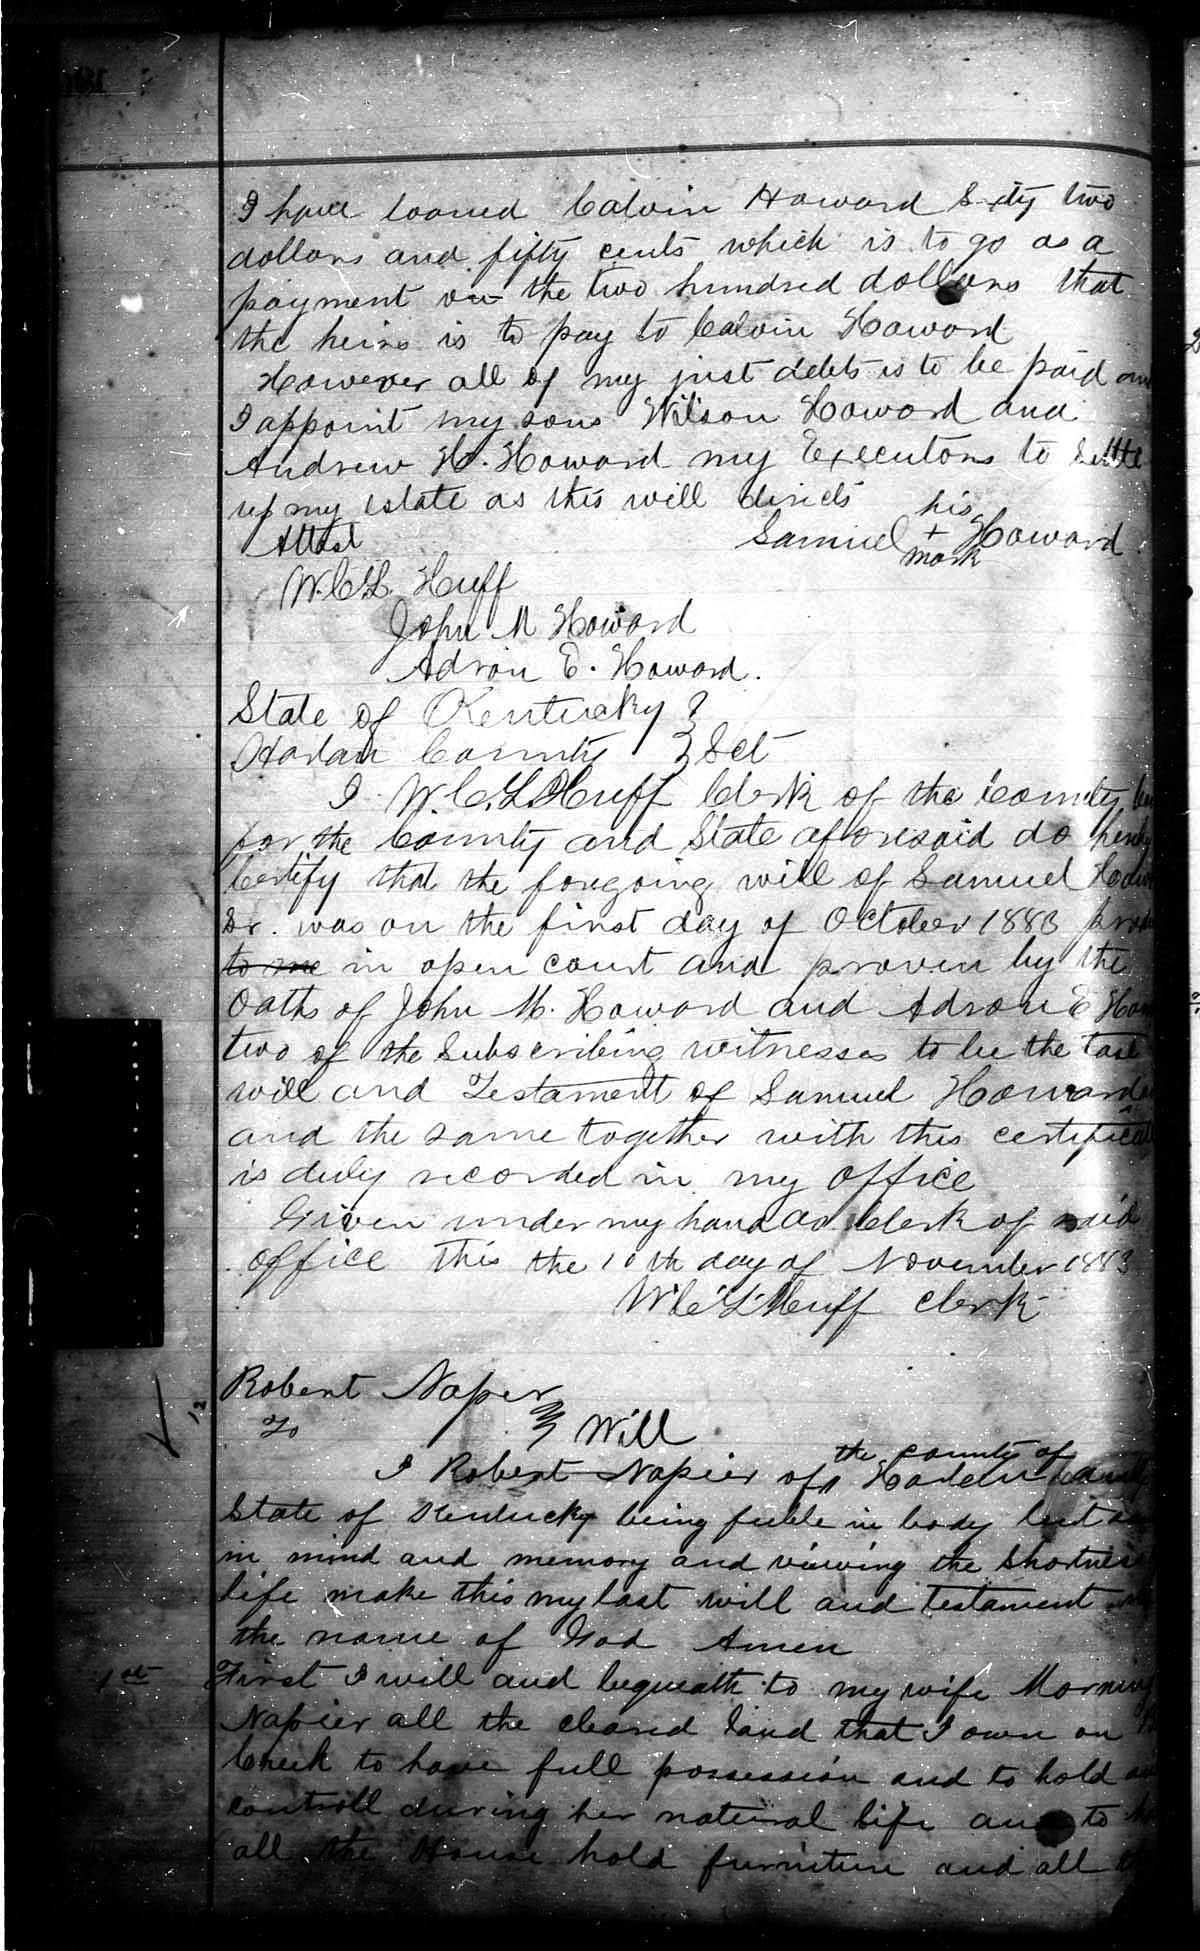 I have loaned Calvin Howard Sixty two
dollars and fifty cents which is to go as a
payment on the two hundred dollars that
the heirs is to pay to Calvin Howard
However all of my just debts is to be paid and
I appoint my sons Wilson Howard and
Andrew H. Howard my Executors to Settle
up my estate as this will directs
his
Attest Samuel + Howard
mark
W.C.L. Huff
John M Howard
Adron E. Howard.
State of Kentucky }
Harlan County } Sct
I W.C.L. Huff Clerk of the County
for the County and State aforesaid do hereby
Certify that the foregoing will of Samuel
Sr. was on the first day of October 1883
to me in open court and proven by the
Oaths of John M. Howard and Adron E
two of the Subscribing witnesses to be the last
will and Testament of Samuel Howard
and the same together with this certificate
is duly recorded in my office
Given under my hand as Clerk of said
office this the 10th day of November 1883
W.C.L. Huff Clerk
Robert Naper
To } Will
the county of
I Robert Napier of Harlan
State of Kentucky being feeble in body but
in mind and memory and viewing the Shortness
life make this my last will and testament
the name of God Amen
1st First I will and bequeath to my wife Morning
Napier all the cleared land that I own on
Creek to have full possession and to hold
controll during her natural life and to
all the House hold furniture and all